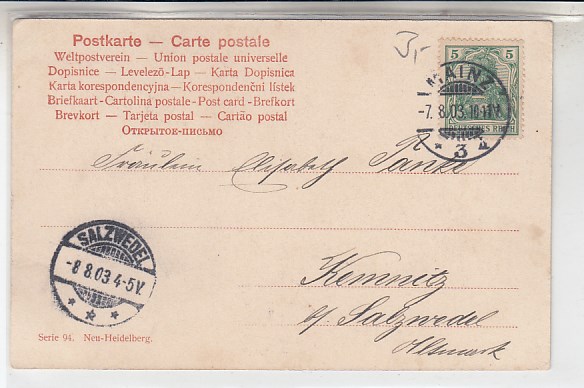 Postkarte — Carte postale
Weltpostverein — Union postale universelle
Dopisnice — Levelező-Lap — Karta Dopisnica
Karta korespondencyjna — Korespondenční lístek
Briefkaart - Cartolina postale - Post card - Brefkort
Brevkort — Tarjeta postal — Cartão postal
Открытое-письмо
5 5
DEUTSCHES REICH
MAINZ
-7.8.03.10-11V.
* 3
Fräulein Elisabeth
Kemnitz
b/ Salzwedel
Altmark
SALZWEDEL
-8 8.03 4-5V.
* * *
Serie 94. Neu-Heidelberg.